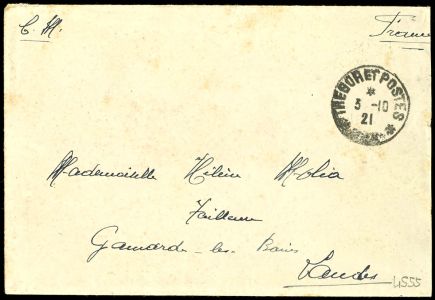 C. M.
France
TRESOR ET POSTES
*
3 -10
21
* *
Mademoiselle Hélène Molia
Tailleur
Gamarde-les-Bains
Landes
4555